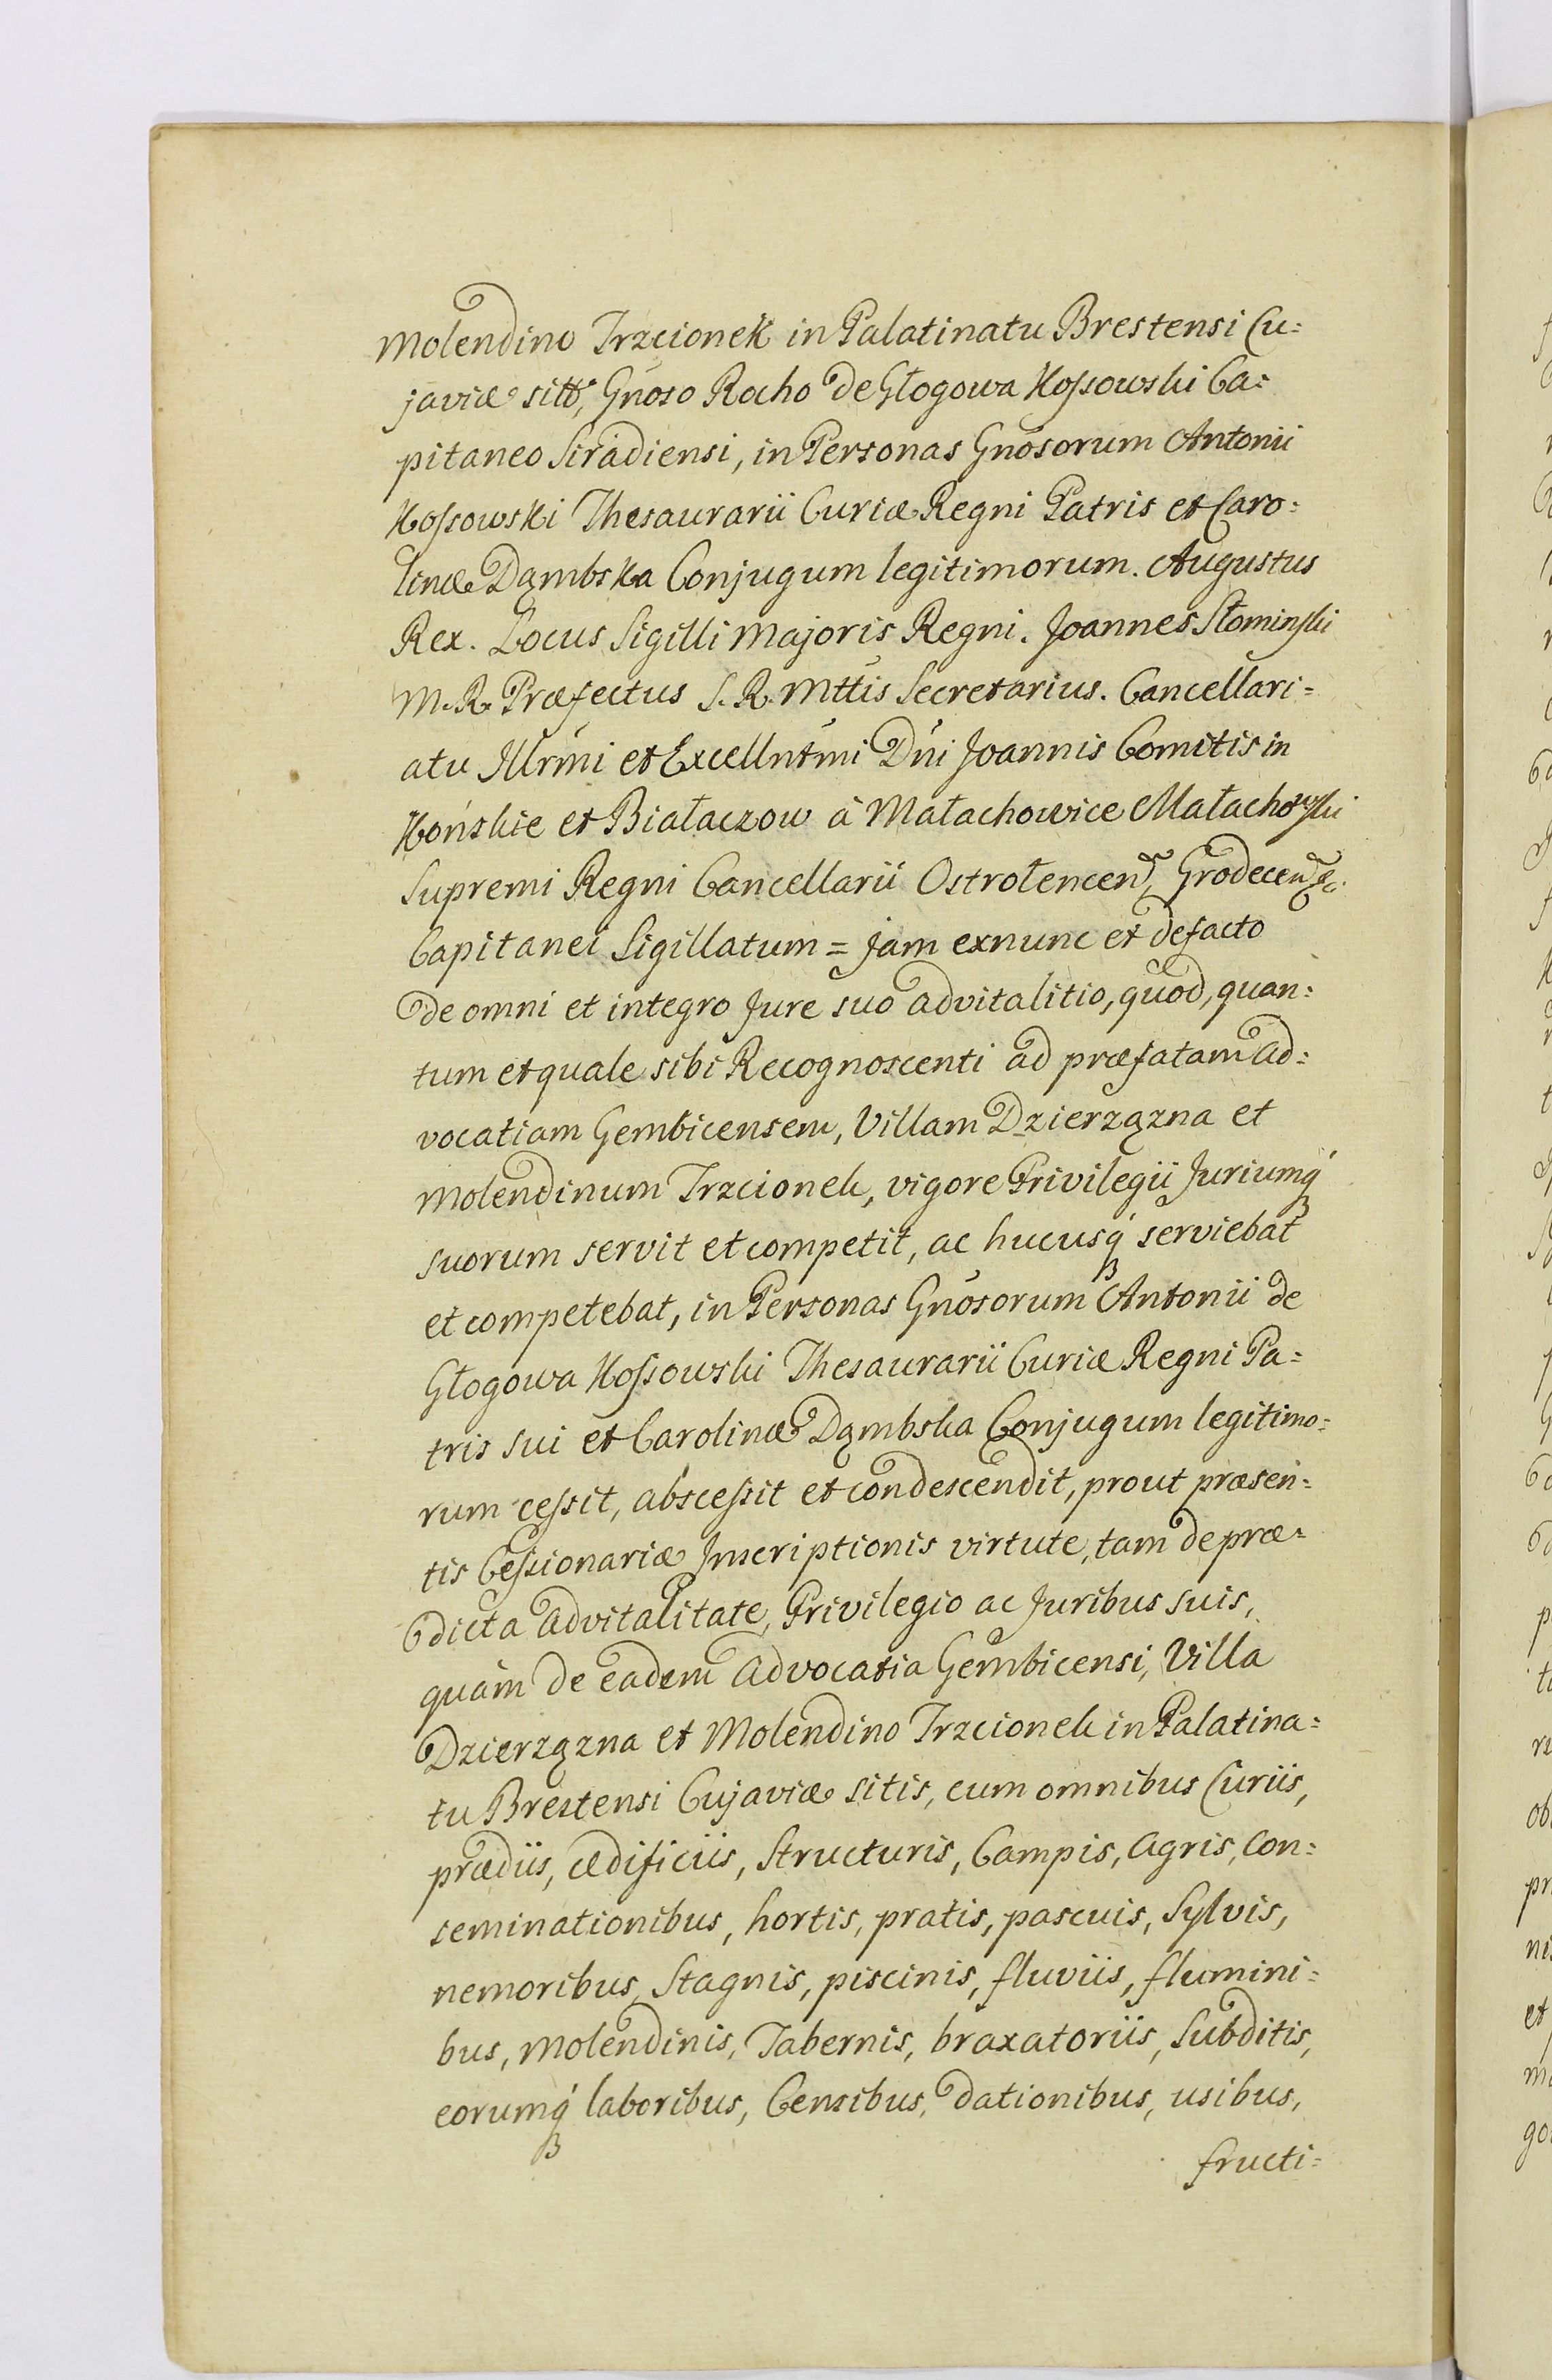 Molendino Trzcionek in Palatinatu Brestensi Cu=
javiæ sitt, Gnoso Rocho de Głogowa Kossowski Ca=
pitaneo Siradiensi, in Personas Gnosorum Antonii
Kossowski Thesaurarii Curiæ Regni Patris et Caro=
linæ Dąmbska Conjugum legitimorum. Augustus
Rex. Locus Sigilli Majoris Regni. Joannes Słominski
M. R. Præfectus S. R. Mttis Secretarius. Cancellari=
atu Illrmi et Excellntmi Dni Joannis Comitis in
Końskie et Białaczow à Małachowice Małachowski
Supremi Regni Cancellarii Ostrołencen, Grodecen &c.
Capitanei Sigillatum = jam exnunc et defacto
de omni et integro Jure suo advitalitio, quod, quan=
tum et quale sibi Recognoscenti ad præfatam Ad=
vocatiam Gembicensem, Villam Dzierzązna et
Molendinum Trzcionek, vigore Privilegii Juriumq́
suorum servit et competit, ac hucusq́ serviebat
et competebat, in Personas Gnosorum Antonii de
Głogowa Kossowski Thesaurarii Curiæ Regni Pa=
tris sui et Carolinæ Dąmbska Conjugum legitimo=
rum cessit, abscessit et condescendit, prout præsen=
tis Cessionariæ Inscriptionis virtute, tam de præ=
dicta advitalitate, Privilegio ac Juribus suis,
quàm de eadem Advocatia Gembicensi, Villa
Dzierzązna et Molendino Trzcionek in Palatina=
tu Brestensi Cujaviæ sitis, cum omnibus Curiis,
prædiis, ædificiis, Structuris, Campis, Agris, Con=
seminationibus, hortis, pratis, pascuis, Sylvis,
nemoribus, Stagnis, piscinis, fluviis, flumini=
bus, Molendinis, Tabernis, braxatoriis, Subditis,
eorumq́ laboribus, Censibus, dationibus, usibus,
fructi=